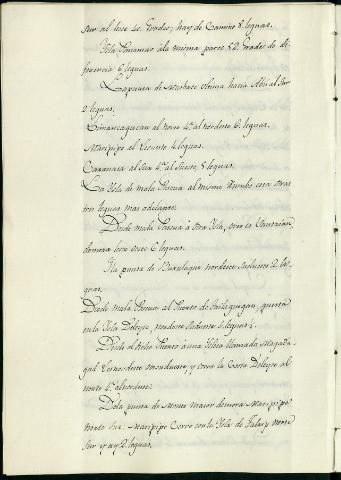 sur al leste 4.º Grados; hay de Camino 8 leguas.
Ysla Simamao á la misma parte 52 Grados de di-
ferencia 6 leguas.
La punta de Masbate última hacia Abri al Sur
2 leguas.
Limancaguayan al Norte 4.ª al nordeste 6 leguas.
Maripipe al Lesueste 4 leguas.
Canauaya al Sur 4.ª al Sueste, 8 leguas.
La Ysla de mala Pascua al mismo Rumbo está otras
tres leguas mas adelante.
Desde mala Pascua á otra Ysla, que es
demora leste oeste 6 leguas.
Y la punta de Burulaque nordeste Suduoeste 2 le-
guas.
Desde mala Pascua al Puerto de que está
en la Ysla Deleyte, nordeste Sudueste 5 leguas.
Desde el dicho Puerto á una Yslea llamada
gad Lesnordeste oesuduueste, y corre la Costa Deleyte al
norte 4.ª al nordeste.
De la punta de Monte Maior demora Maripipe
norte Sur. Maripipe Corre con la Ysla de y norte
Sur y ay 2 leguas.